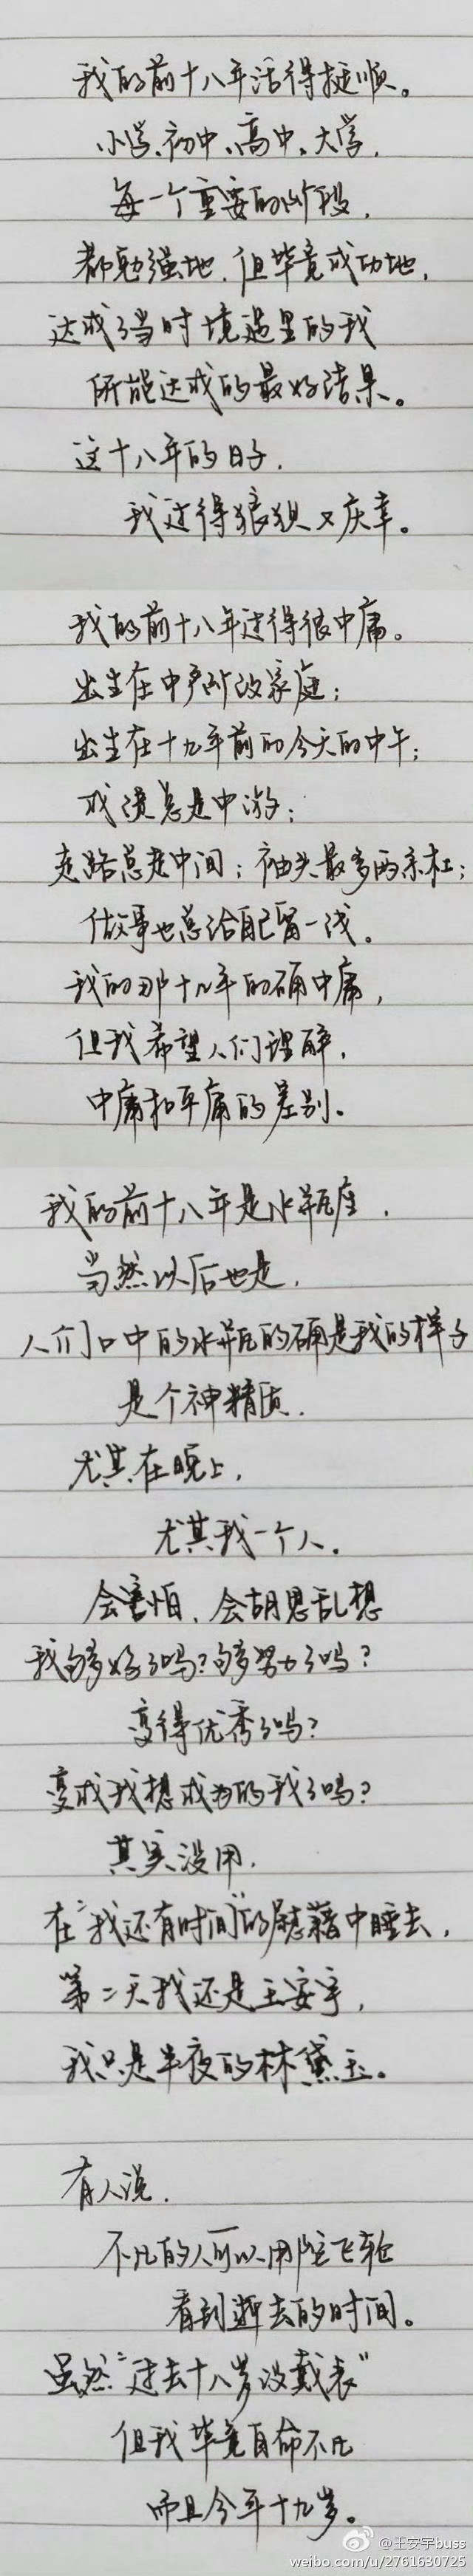 我的前十八年活得挺顺。
小学、初中、高中、大学，
每一个重要的阶段，
都勉强地，但毕竟成功地，
达成了当时境遇里的我
所能达成的最好结果。
这十八年的日子，
我过得狼狈又庆幸。
我的前十八年过得很中庸。
出生在中产阶级家庭；
出生在十九年前的今天的中午；
成绩总是中游；
走路总走中间；袖头最多两条杠；
做事也总给自己留一线。
我的那十八年的确中庸，
但我希望人们理解，
中庸和平庸的差别。
我的前十八年是水瓶座，
当然以后也是，
人们口中的水瓶的确是我的样子
是个神精质，
尤其在晚上，
尤其我一个人。
会害怕、会胡思乱想
我够好了吗？够努力了吗？
变得优秀了吗？
变成我想成为的我了吗？
其实没用，
在“我还有时间”的慰藉中睡去，
第二天我还是王安宇，
我只是半夜的林黛玉。
有人说，
不凡的人可以用陀飞轮
看到逝去的时间。
虽然“过去十八岁没戴表”
但我毕竟自命不凡
而且今年十九岁。
@王安宇buss
weibo.com/u/2761630725